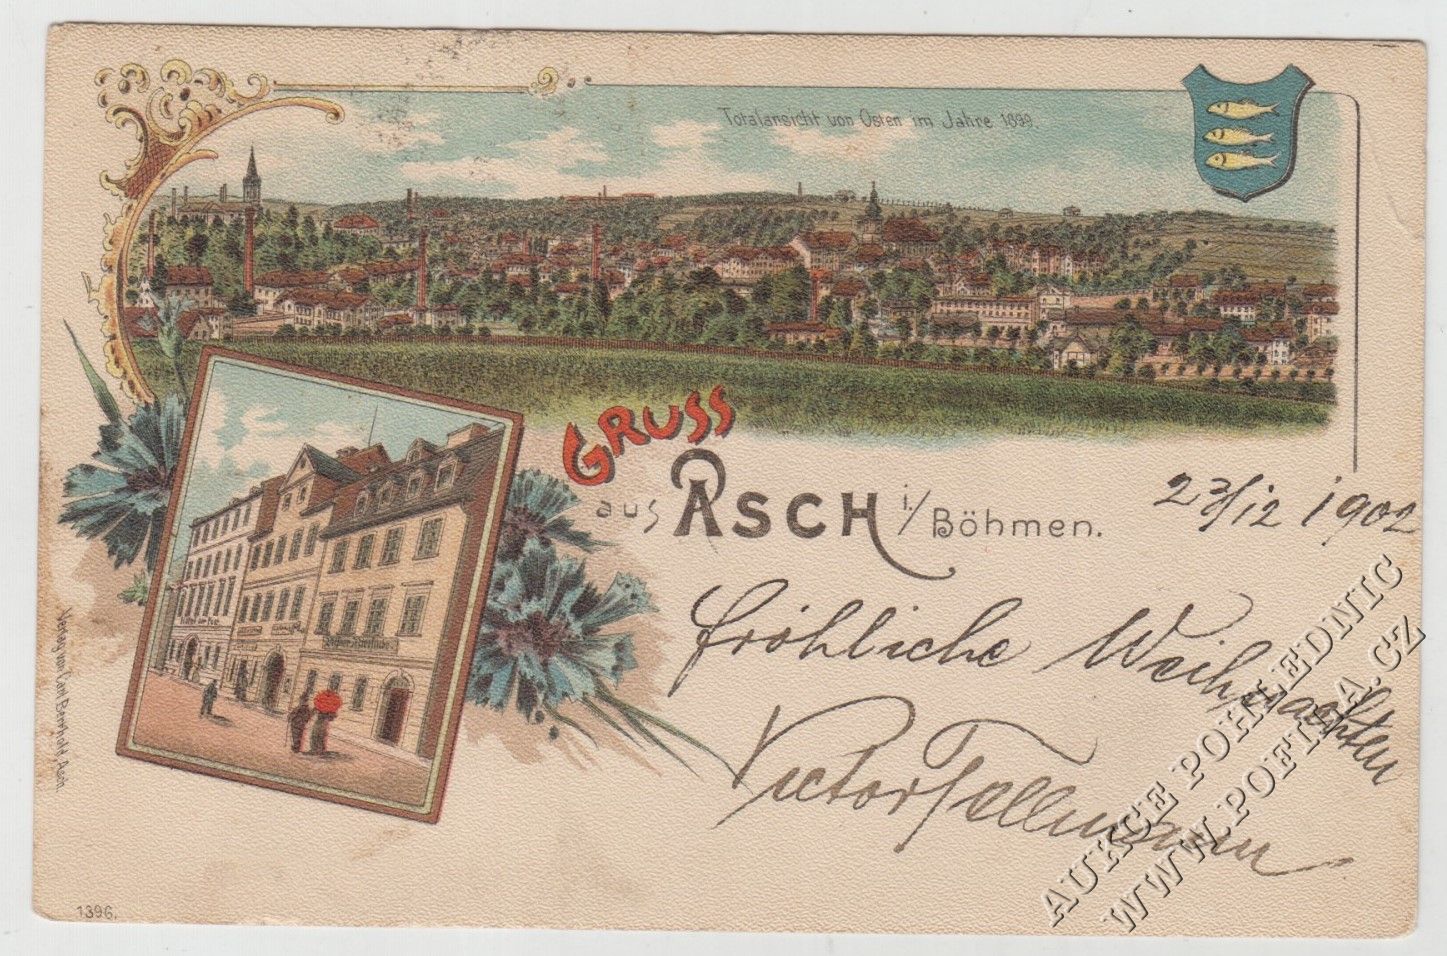 Totalansicht von Osten im Jahre 1899
GRUSS
aus ASCH i/Böhmen.
23/12 1902
fröhliche Weihnachten
Victor Fellmann
Hôtel zur Post
Verlag von Carl Berthold, Asch.
1396.
AUKCE POHLEDNIC
WWW.POFILA.CZ